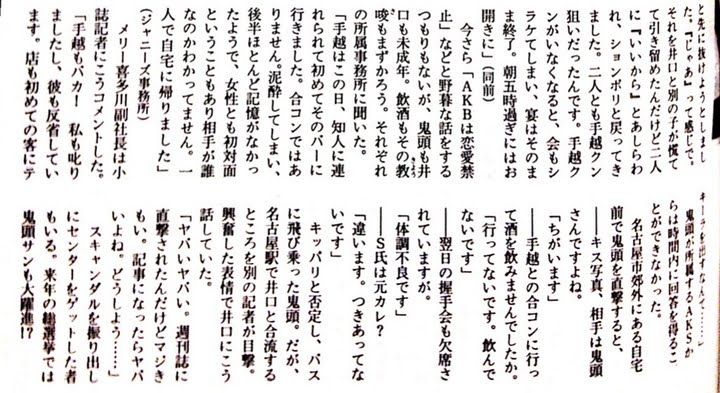 と先に抜けようとしまし
た。『じゃあ』って感じで。
それを井口と別の子が慌て
て引き留めたんだけど二人
に『いいから』とあしらわ
れ、ションボリと戻ってき
ました。二人とも手越クン
狙いだったんです。手越ク
ンがいなくなると、会もシ
ラケてしまい、宴はそのま
ま終了。朝五時過ぎにはお
開きに」（同前）
今さら「AKBは恋愛禁
止」などと野暮な話をする
つもりもないが、鬼頭も井
口も未成年。飲酒もその教
唆もまずかろう。それぞれ
の所属事務所に聞いた。
「手越はこの日、知人に連
れられて初めてそのバーに
行きました。合コンではあ
りません。泥酔してしまい、
後半ほとんど記憶がなかっ
たようで、女性とも初対面
ということもあり相手が誰
なのかわかってません。一
人で自宅に帰りました」
（ジャニーズ事務所）
メリー喜多川副社長は小
誌記者にこうコメントした。
「手越もバカ！　私も叱り
ましたし、彼も反省してい
ます。店も初めての客にテ
キーラを出すなんて……」
鬼頭が所属するAKSか
らは時間内に回答を得るこ
とができなかった。
名古屋市郊外にある自宅
前で鬼頭を直撃すると、
――キス写真、相手は鬼頭
さんですよね。
「ちがいます」
――手越との合コンに行っ
て酒を飲みませんでしたか。
「行ってないです。飲んで
ないです」
――翌日の握手会も欠席さ
れていますが。
「体調不良です」
――S氏は元カレ？
「違います。つきあってな
いです」
キッパリと否定し、バス
に飛び乗った鬼頭。だが、
名古屋駅で井口と合流する
ところを別の記者が目撃。
興奮した表情で井口にこう
話していた。
「ヤバいヤバい。週刊誌に
直撃されたんだけどマジき
もい。記事になったらヤバ
いよね。どうしよう……」
スキャンダルを振り出し
にセンターをゲットした者
もいる。来年の総選挙では
鬼頭サンも大躍進!?